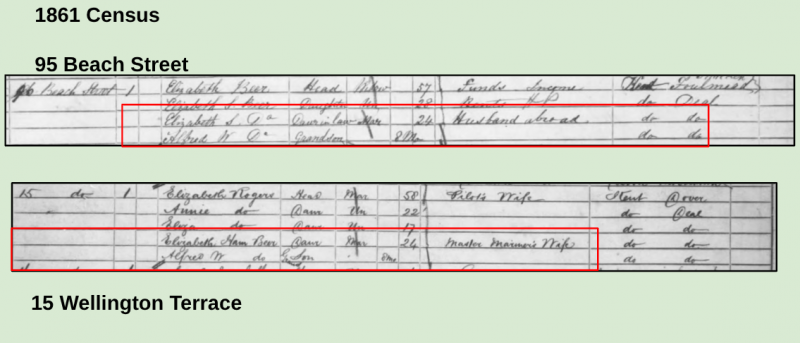 1861 Census
95 Beach Street
96 Beach Street 1 Elizabeth Beer Head Widow 57 Funds Income Kent
Elizabeth S Beer Daughter Un 28 do Deal
Elizabeth S. Do Daurinlaw Mar 24 Husband abroad do do
Alfred W Do Grandson 8 Mo do do
15 do 1 Elizabeth Rogers Head Mar 58 Pilot's Wife Kent Dover
Annie do Daur Un 22 do Deal
Eliza do Daur Un 17 do do
Elizabeth Ham Beer Daur Mar 24 Master Mariner's Wife do do
Alfred W do G Son 8mo do do
15 Wellington Terrace